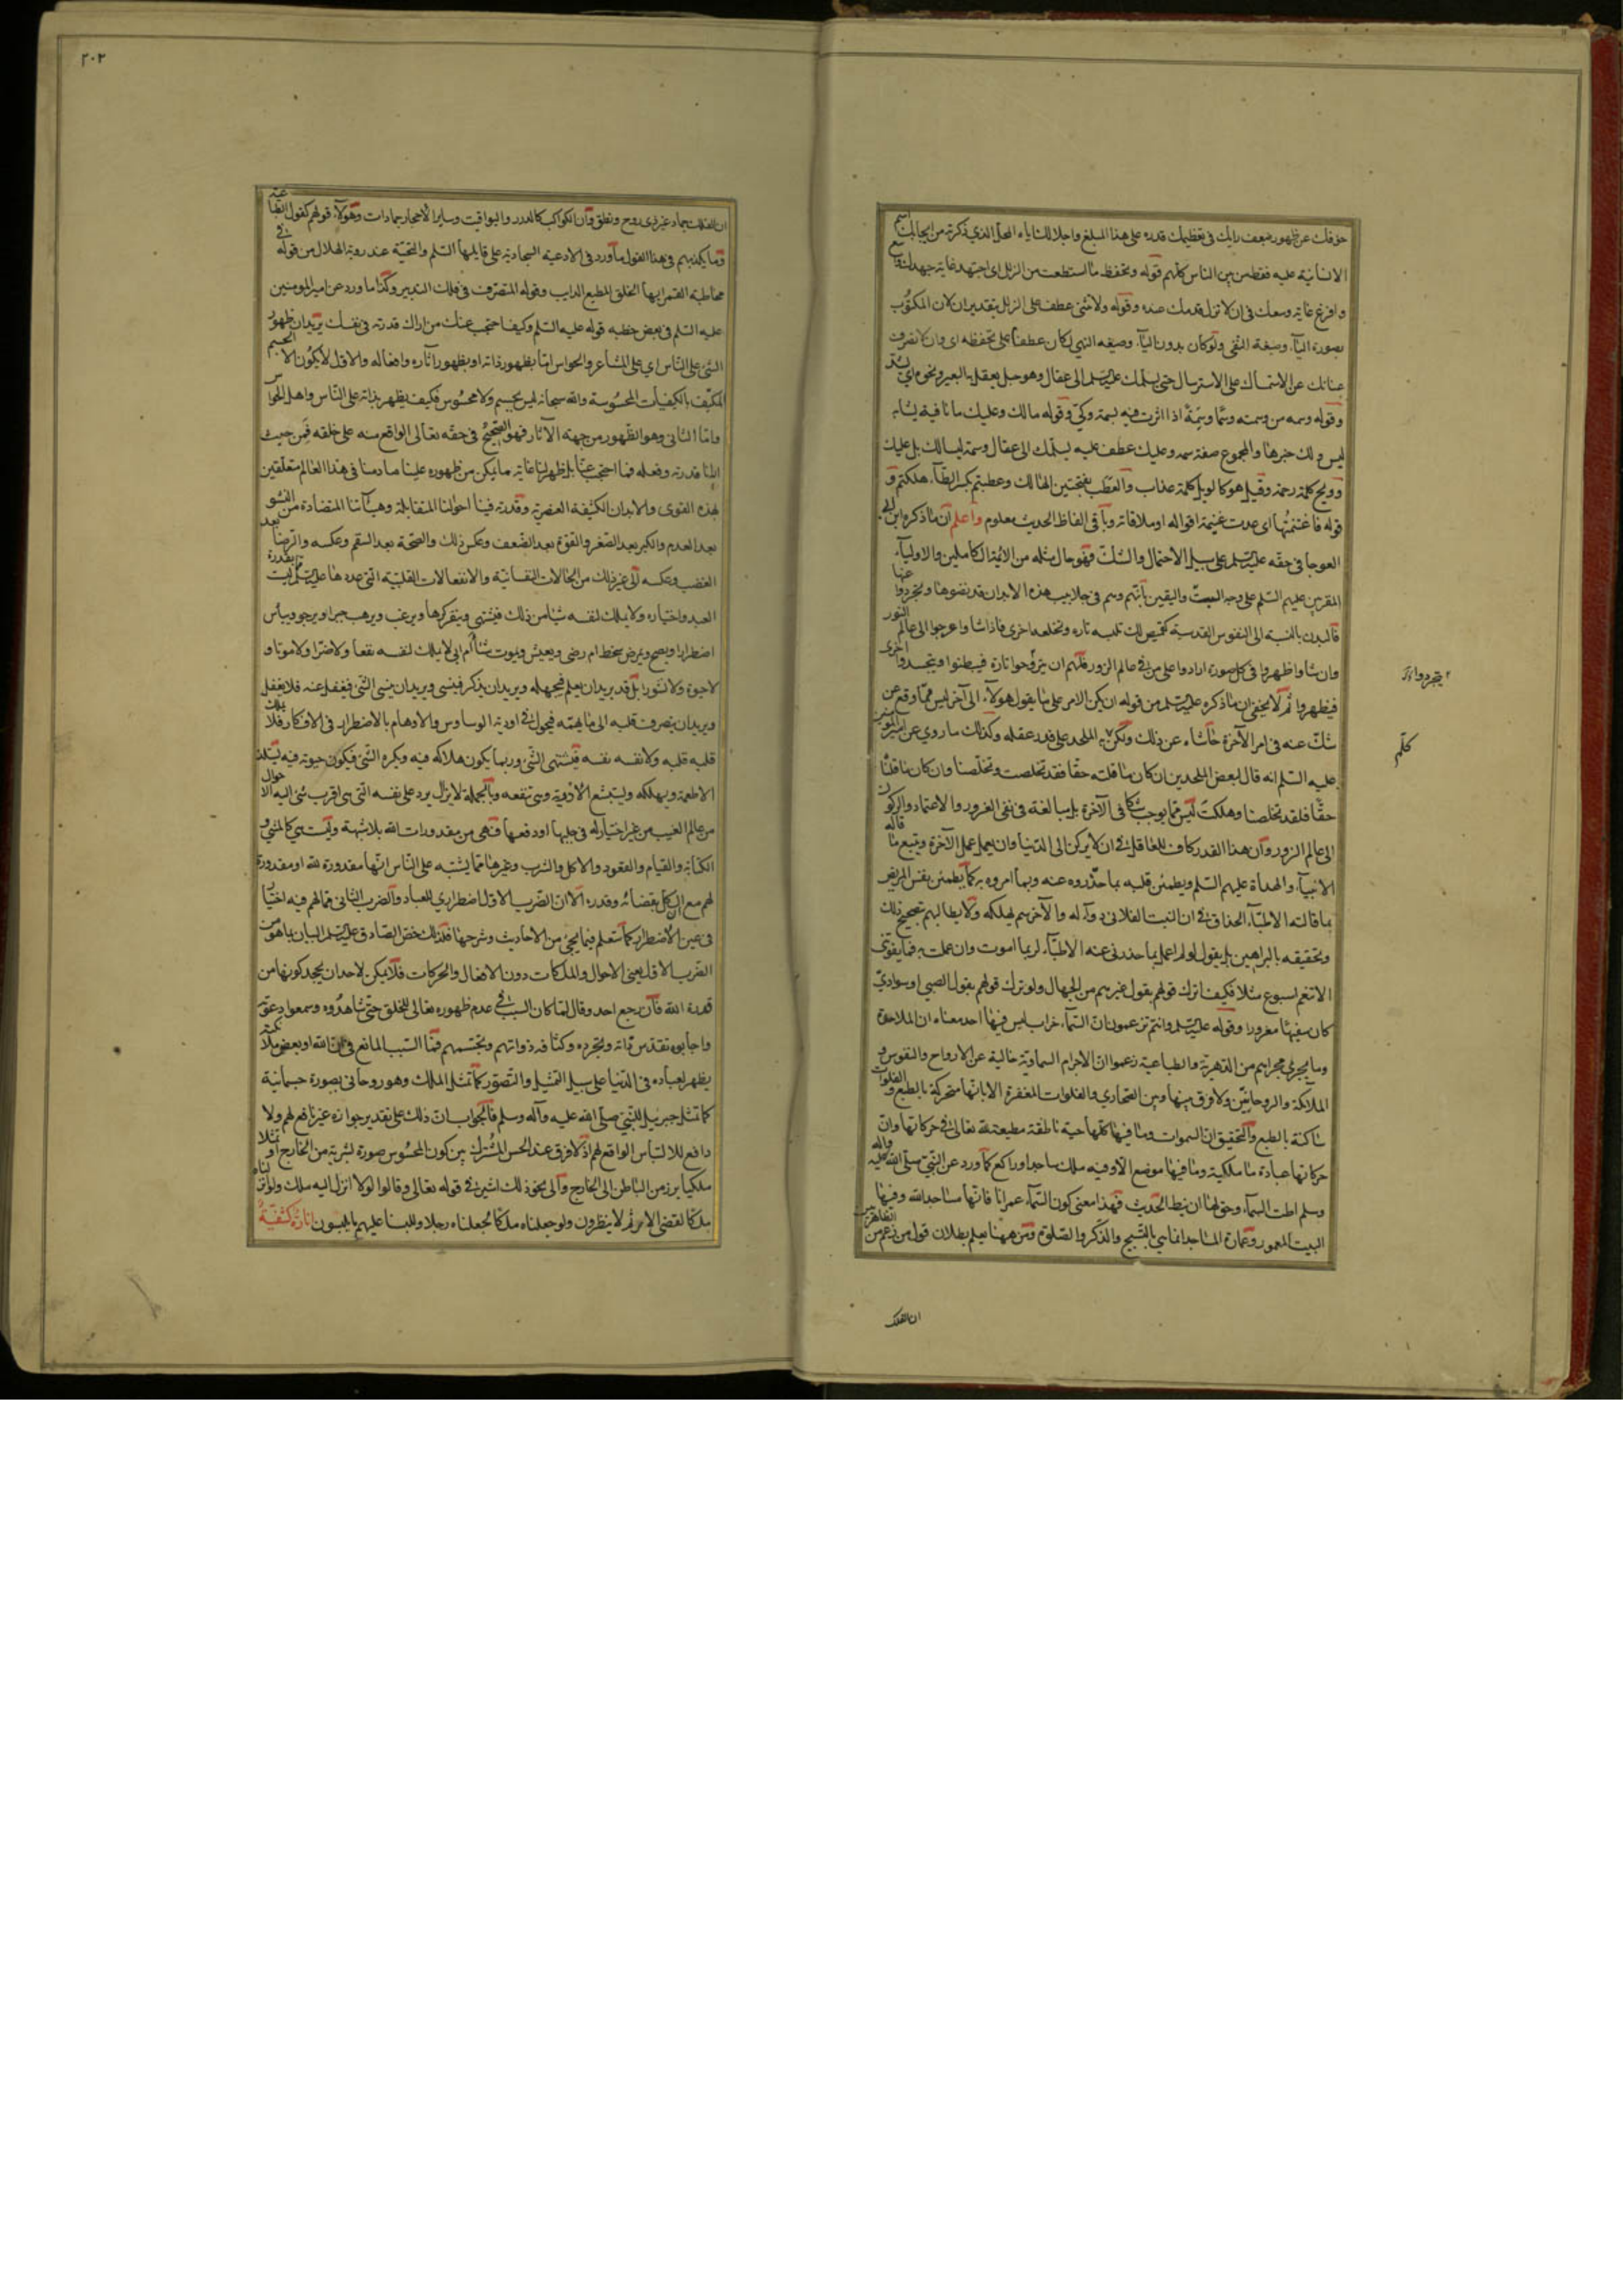 خوفك عن ظهور ضعف رايك في تعظيمك قدره على هذا المبلغ واجلالك اياه المحل الذي ذكرته من ايجابك اسم
الانسانية عليه فقط من بين الناس كلهم قوله وتحفظ ما استطعت من الزلل اي اجتهد غاية جهدك
وافرغ غاية وسعك في ان لا تزل قدمك عنده وقوله ولا تثنى عطف على الزلل بتقدير ان لان المكتوب
بصورة الياء وصيغة النفي ولو كان بدون الياء وصيغه النهي لكان عطفا على تحفظ اي وان لا تصرف
عنانك عن الاستمساك على الاسترسال حتى يسلمك عليه السلم الى عقال وهو حبل يعقل به البعير ونحوه اي يشد
وقوله وسمه من وسمته وسما وسمة اذا اثرت فيه بسمة وكي وقوله مالك وعليك ما نافية يشابه
ليس ولك خبرها والمجموع صفة سمه وعليك عطف عليه يسلمك الى عقال وسمة ليسا لك بل عليك
وويح كلمة رحمة وقيل هو كالويل كلمة عذاب والعطب بفتحتين الهلاك وعطبتم بكسر الطاء هلكتم و
قوله فاغتنمتها اي عددت غنيمة اقواله او ملاقاته وباقي الفاظ الحديث معلوم واعلم ان ما ذكره ابن ابي
العوجا في حقه عليه السلم على سبيل الاحتمال والشك فهو حال مثله من الائمة الكاملين والاولياء
المقربين عليهم السلم على وجه البت واليقين بانهم وهم في جلابيب هذه الابدان قد نضوها وتجردوا عنها
فالبدن بالنسبة الى النفوس القدسية كقميص لك تلبسه تارة وتخلعه اخرى فاذا شاوا عرجوا الى عالم النور
وان شاوا ظهروا في كل صورة ارادوا على من في عالم الزور فلهم ان يتروحوا تارة فيبطنوا ويتجسدوا اخرى
فيظهروا ثم لا يخفى ان ما ذكره عليه السلم من قوله ان يكن الامر على ما يقول هولاء الى آخر ليس مما وقع عن
شك عنه في امر الآخرة حاشاه عن ذلك ولكن الملحد على قدر عقله وكذلك ما روي عن امير المومنين
عليه السلم انه قال لبعض الملحدين ان كان ما قلته حقا فقد تخلصت وتخلصنا وان كان ما قلنا
حقا فلقد تخلصنا وهلكت ليس مما يوجب شكا في الآخرة بل مبالغة في نفي الغرور والاعتماد والركون
الى عالم الزور وان هذا القدر كاف للعاقل في ان لا يركن الى الدنيا وان يعمل عمل الآخرة ويتبع ما قاله
الانبياء والهداة عليهم السلم ويطمئن قلبه بما حذروه عنه وبما امروه به كما يطمئن نفس المريض
بما قالته الاطباء الحذاق في ان النبت الفلاني دواء له والآخر سم يهلكه ولا يطالبهم تصحيح ذلك
وتحقيقه بالبراهين بل يقول لو لم اعمل بما حذرني عنه الاطباء لربما اموت وان عملت به فما يفوتني
الا تنعم اسبوع مثلا فكيف اترك قولهم بقول غيرهم من الجهال ولو ترك قولهم بقول الصبي او سوادي
كان سفيها مغرورا وقوله عليه السلم وانتم تزعمون ان السماء خراب ليس فيها احد معناه ان الملاحدة
وما يجري مجراهم من الدهرية والطباعية زعموا ان الاجرام السماوية خالية عن الارواح والنفوس و
الملائكة والروحانيين ولا فرق بينها وبين الصحاري والفلوات المقفرة الا بانها متحركة بالطبع والفلوات
ساكنة بالطبع والتحقيق ان السموات وما فيها كلها حية ناطقة مطيعة لله تعالى في حركاتها وان
حركاتها عبادة ما ملكية وما فيها موضع الا وفيه ملك ساجد او راكع كما ورد عن النبي صلى الله عليه واله
وسلم اطت السماء وحق لها ان تئط الحديث فهذا معنى كون السماء عمرانا فانها مساجد الله وفيها
البيت المعمور وعمارة المساجد انما هي بالتسبيح والذكر والصلوة ومن ههنا يعلم بطلان قول من زعم من الظاهريين
ان الفلك
يتجردوا
كلم
٢٠٢
ان الفلك جماد غير ذي روح ونطق وان الكواكب كالدرر واليواقيت وساير الاحجار جمادات وهولاء قولهم كقول الطباعية
ومما يكذبهم في هذا القول ما ورد في الادعية السجادية على قايلها السلم والتحية عند روية الهلال من قوله في
مخاطبة القمر ايها الخلق المطيع الدايب وقوله المتصرف في فلك التدبير وكذا ما ورد عن امير المومنين
عليه السلم في بعض خطبه قوله عليه السلم وكيف احتجب عنك من اراك قدرته في نفسك يريد ان ظهور
الشيء على الناس اي على المشاعر والحواس اما بظهور ذاته او بظهور آثاره وافعاله والاول لا يكون الا الجسم
المكيف بالكيفيات المحسوسة والله سبحانه ليس بجسم ولا محسوس فكيف يظهر بذاته على الناس واهل الحواس
واما الثاني وهو الظهور من جهة الآثار فهو الصحيح في حقه تعالى الواقع منه على خلقه فمن حيث
ارانا قدرته وفعله فما احتجب عنا بل ظهر لنا غاية ما يمكن من ظهوره علينا ما دمنا في هذا العالم متعلقين
بهذه القوى والابدان الكثيفة العنصرية وقدرته فينا احوالنا المتقابلة وهيآتنا المتضادة من النشو
بعد العدم والكبر بعد الصغر والقوة بعد الضعف وعكس ذلك والصحة بعد السقم وعكسه والرضا بعد
الغضب وعكسه الى غير ذلك من الحالات النفسانية والانفعالات القلبية التي عددها عليه السلم ليست بقدرة
العبد واختياره ولا يملك لنفسه شيئا من ذلك فيشتهي وينفر كرها ويرغب ويرهب جبرا ويرجو وييأس
اضطرارا ويصح ويمرض سخط ام رضي ويعيش ويموت شأ أم ابى لا يملك لنفسه نفعا ولا ضرا ولا موتا و
لا حيوة ولا نشورا بل قد يريد ان يعلم فيجهله ويريد ان يذكر فينسى ويريد ان ينسى الشيء فيغفل عنه فلا يغفل
ويريد ان يصرف قلبه الى ما يهمه فيجول في اودية الوساوس والاوهام بالاضطرار في الافكار فلا يملك
قلبه قلبه ولا نفسه نفسه فيشتهي الشيء وربما يكون هلاكه فيه ويكره الشيء فيكون حيوته فيه يستلذ
الاطعمة ويهلكه ويستبشع الادوية وهي تنفعه وبالجملة لا يزال يرد على نفسه التي هي اقرب شيء اليه احوال
من عالم الغيب من غير اختيار له في جلبها او دفعها فهي من مقدورات الله بلا شبهة وليست هي كالمشي و
الكتابة والقيام والقعود والاكل والشرب وغيرها مما يشتبه على الناس انها مقدورة لله او مقدورة
لهم مع ان الكل بقضائه وقدره الا ان الضرب الاول اضطراري للعباد والضرب الثاني فمالهم فيه اختيار
في عين الاضطرار كما ستعلم فيما يجئ من الاحاديث وشرحها فلذلك خص الصادق عليه السلم البيان بما هو من
الضرب الاول يعني الاحوال والملكات دون الافعال والحركات فلا يمكن لاحد ان يجحد كونها من
قدرة الله فان رجع احد وقال لما كان السبب في عدم ظهوره تعالى للخلق حتى شاهدوه وسمعوا دعوته
واجابوه تقدس ذاته وتجرده وكثافة ذواتهم وتجسمهم فما السبب المانع في ان الله او بعض ملائكته
يظهر لعباده في الدنيا على سبيل التمثيل والتصور كما تمثل الملك وهو روحاني بصورة جسمانية
كما تمثل جبرئيل للنبي صلى الله عليه وآله وسلم فالجواب ان ذلك على تقدير جوازه غير نافع لهم ولا
دافع للالتباس الواقع لهم اذ لا فرق عند الحس المشترك بين كون المحسوس صورة بشرية من الخارج او تمثلا
ملكيا برز من الباطن الى الخارج والى نحو ذلك اشير في قوله تعالى وقالوا لولا انزل اليه ملك ولو انزلناه
ملكا لقضي الامر ثم لا ينظرون ولو جعلناه ملكا لجعلناه رجلا وللبسنا عليهم ما يلبسون انارة كشفية